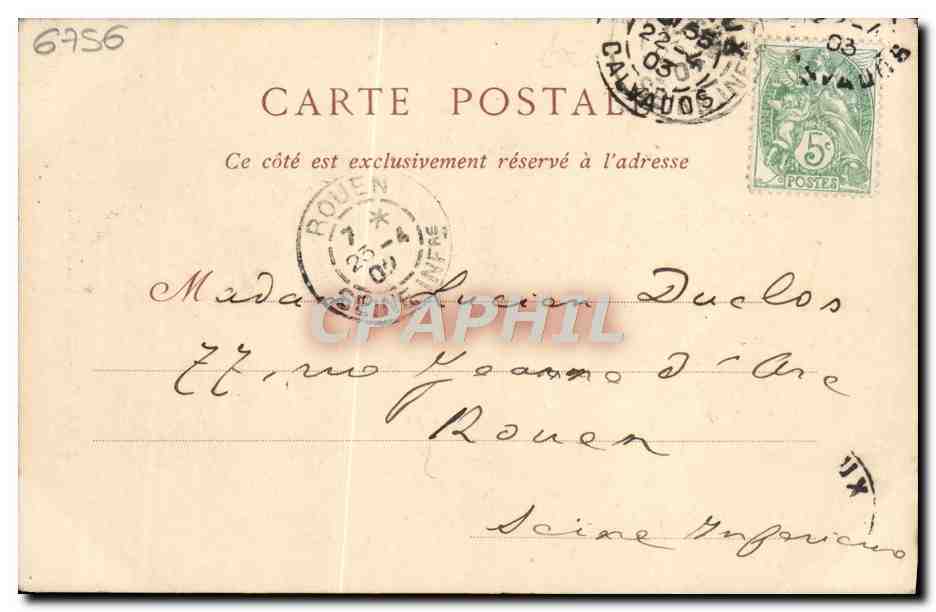 6756
CARTE POSTALE
Ce côté est exclusivement réservé à l'adresse
CALVADOS
22 -4
03
5c
POSTES
ROUEN
7 *
23 -4
03
SEINE INFRE
Madame Lucien Duclos
CPAPHIL
77, rue Jeanne d'Arc
Rouen
UX
Seine Inferieure